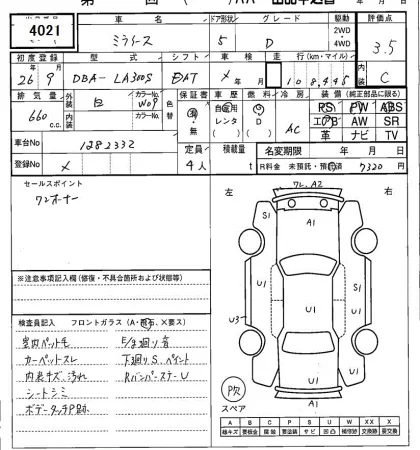 4021
車名
ドア形状
グレード
駆動
評価点
ミライース
5
D
2WD
4WD
3.5
初度登録
型式
シフト
車検
走行(km・マイル)
内装
26年9月
DBA-LA300S
EAT
×
108,445
C
排気量
外装
カラーNo.
色替
保証書
車歴
燃料
冷房
装備(純正部品に限る)
660 c.c.
白
W09
内装
カラーNo.
有
無
自家用
レンタ
G
D
AC
PS PW ABS
エアB AW SR
革 ナビ TV
車台No
1282332
定員
積載量
名変期限
年 月 日
登録No
×
4人
t
R料金 未預託・預託済
7320円
セールスポイント
ワンオーナー
左
右
ワレ A2
A1
S1
S1
U1
U1
U1
U3
U1
U1
A1
※注意事項記入欄(修復・不具合箇所および状態等)
検査員記入 フロントガラス(A・飛石・X要ス)
室内ペット毛
E/g廻り音
カーペットスレ
下廻りS、ペイント
内装キズ、汚れ
Rバンパーステー U
シートシミ
ボデータッチP跡
スペア
A B C P S U W X XX
線キズ 要板金 腐蝕 要塗装 サビ 凹凸 補修跡 要交換 交換済